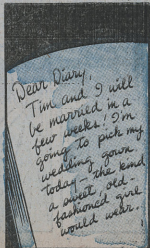 Dear Diary,
Tim and I will
be married in a
few weeks! I'm
going to pick my
wedding gown
today - the kind
a sweet old-
fashioned girl
would wear!